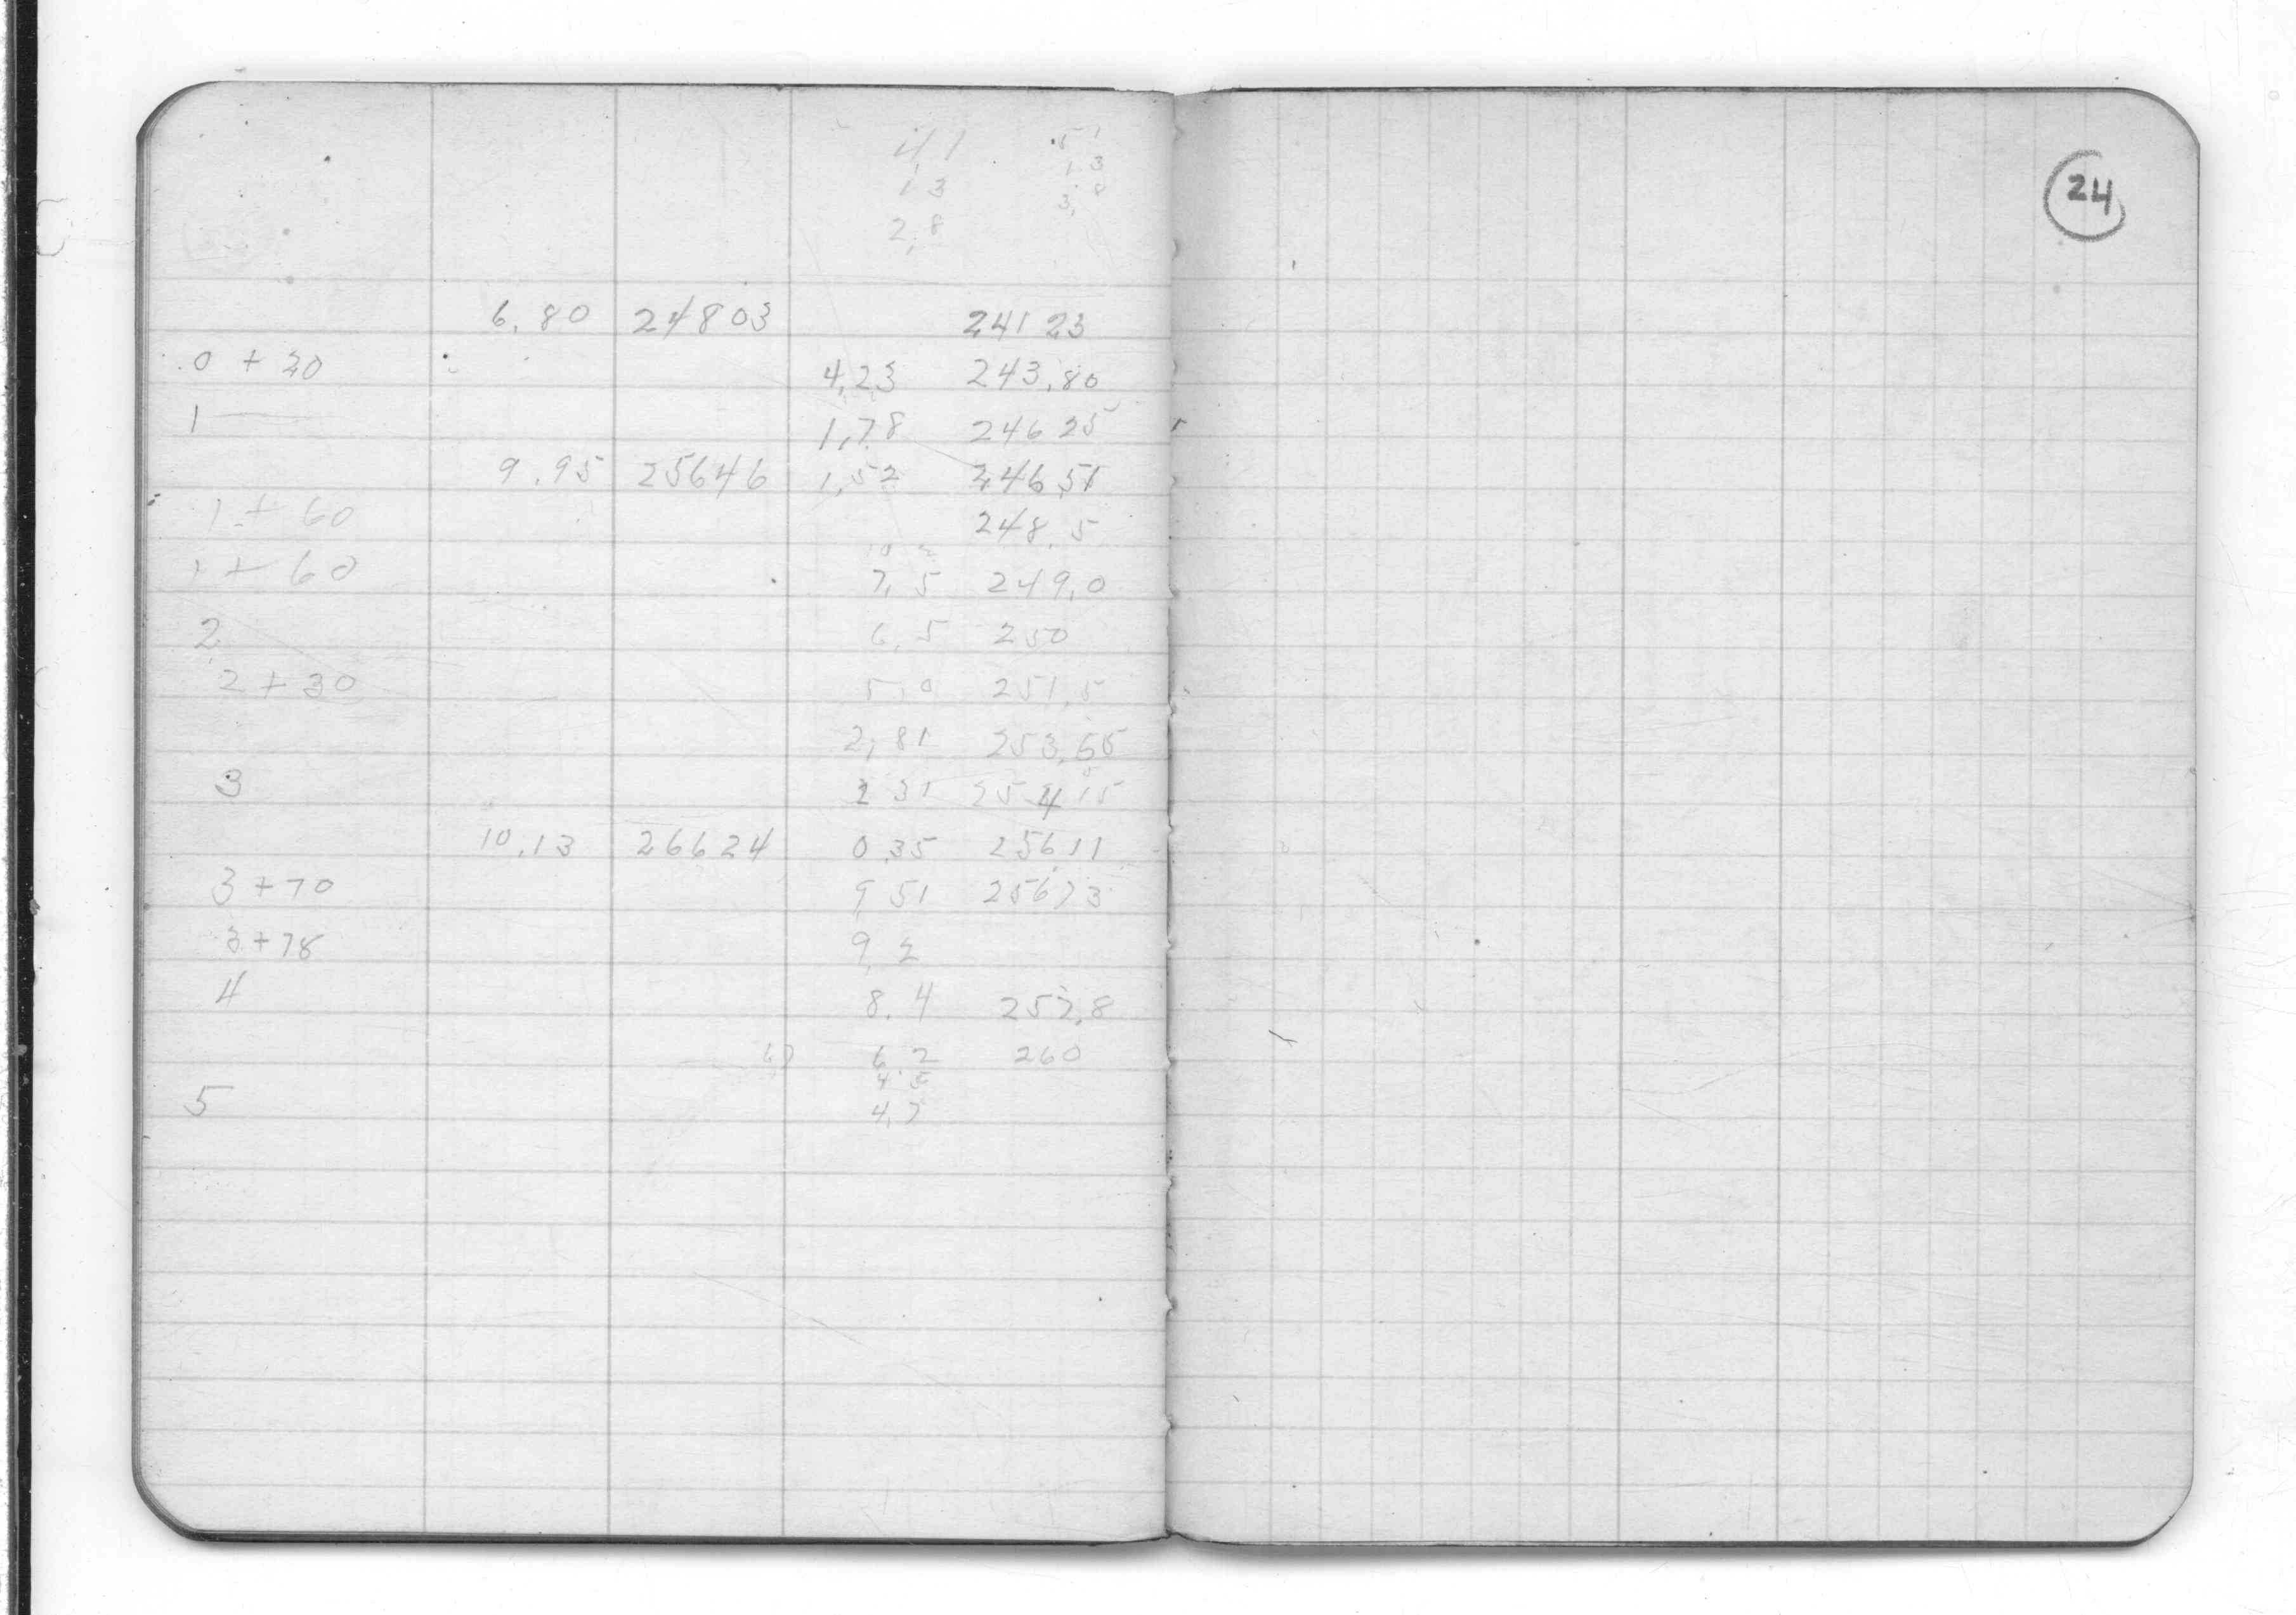 4 1 .5 1
1 3 1 3
2,8 3,8
24
6.80 24803 24123
0 + 20 4,23 243.80
1 1,78 24625
9.95 25646 1,52 24651
1 + 60 248.5
1 + 60 7,5 249.0
2 6.5 250
2 + 30 5,0 251.5
2,81 253.65
3 2 31 254 15
10.13 26624 0.35 25611
3 + 70 9 51 25673
3 + 78 9.2
4 8.4 257.8
6.2 260
4.5
5 4.7